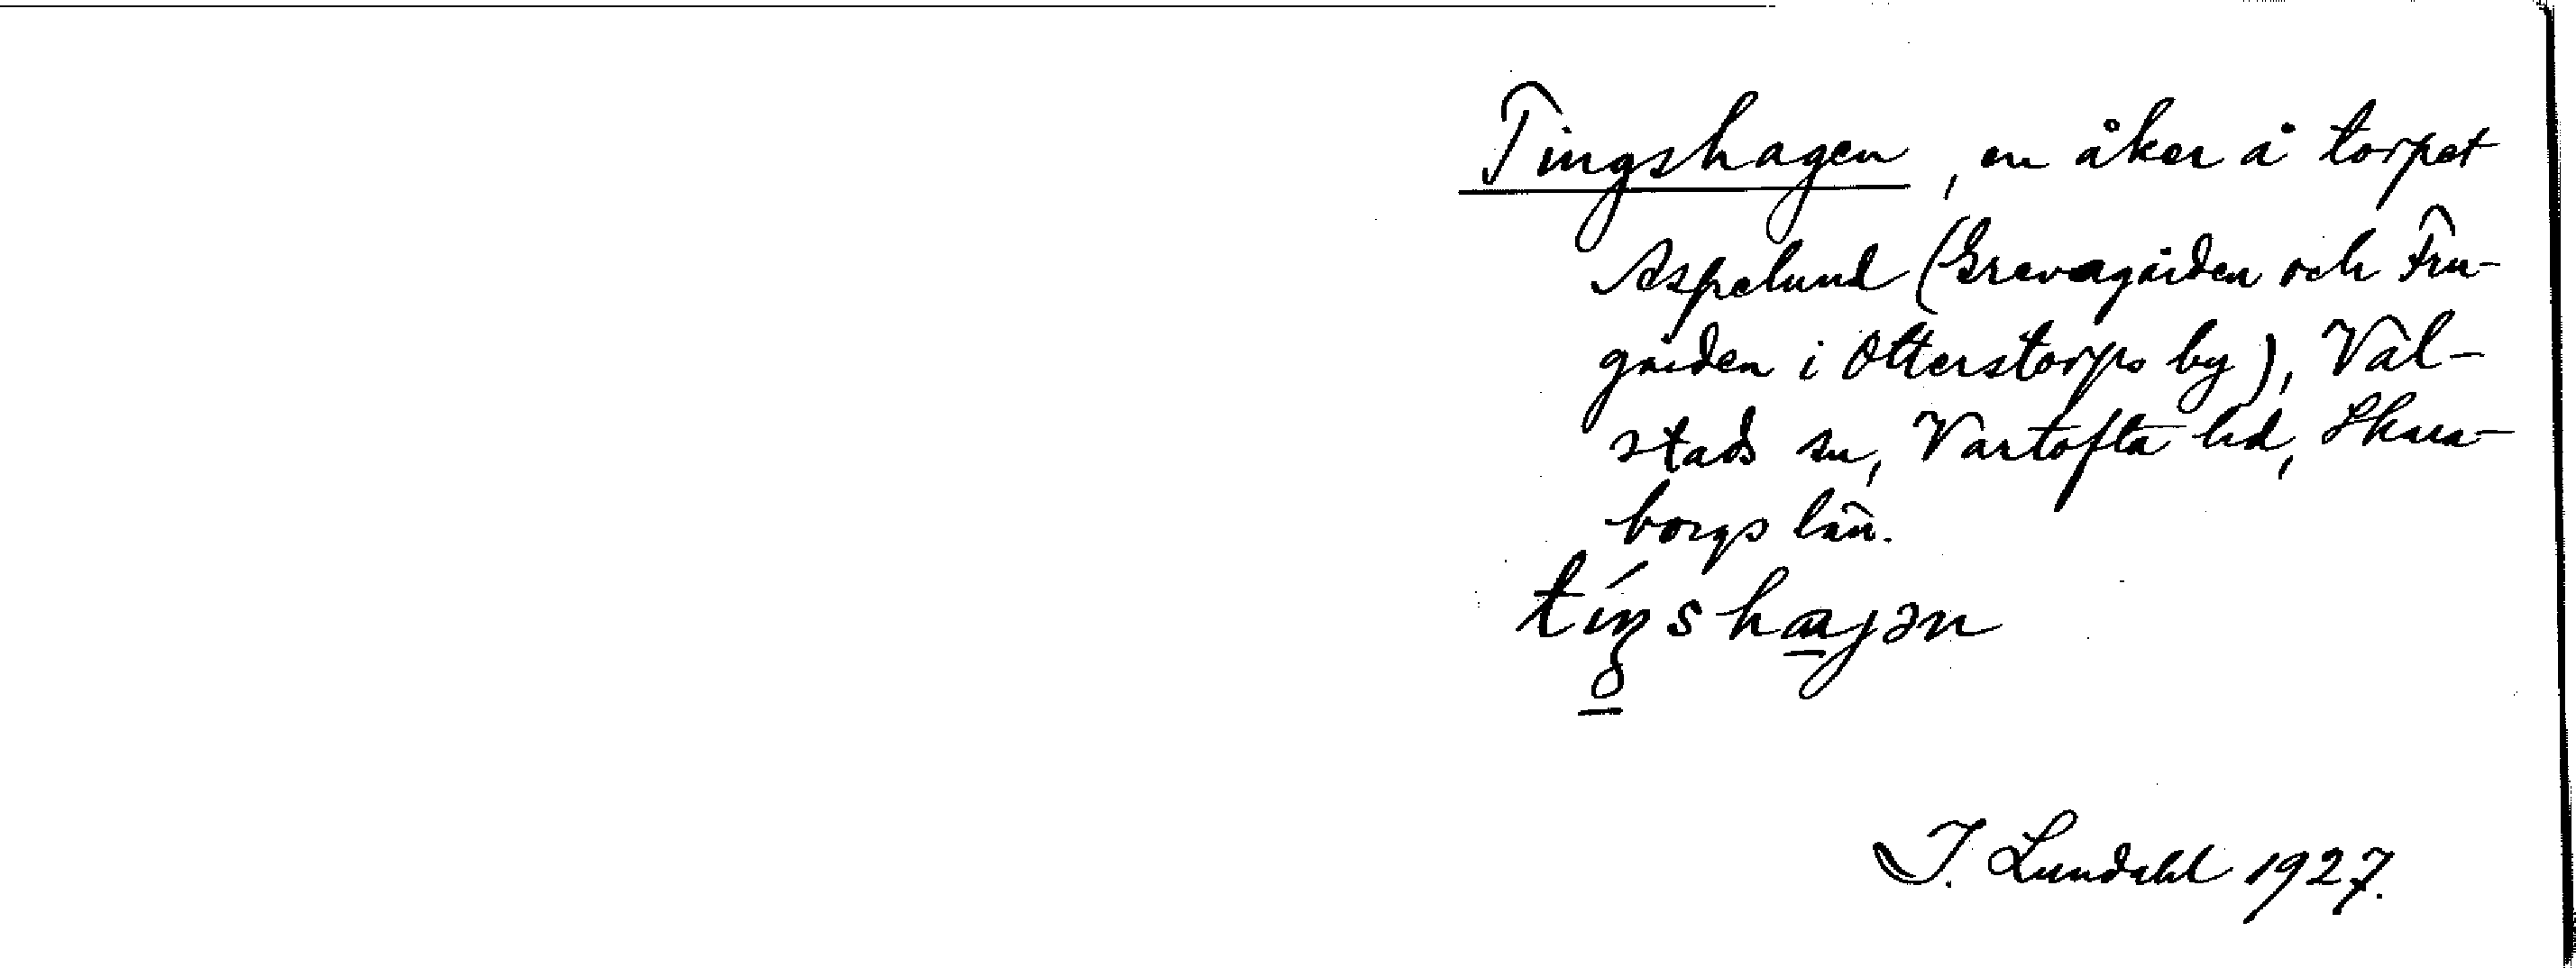 Tingshagen, en åker å torpet
Aspelund (Grevagården och Fru-
gården i Otterstorps by), Väl-
stads sn, Vartofta hd, Skara-
borgs län.
tíŋshajən
I. Lundahl 1927.